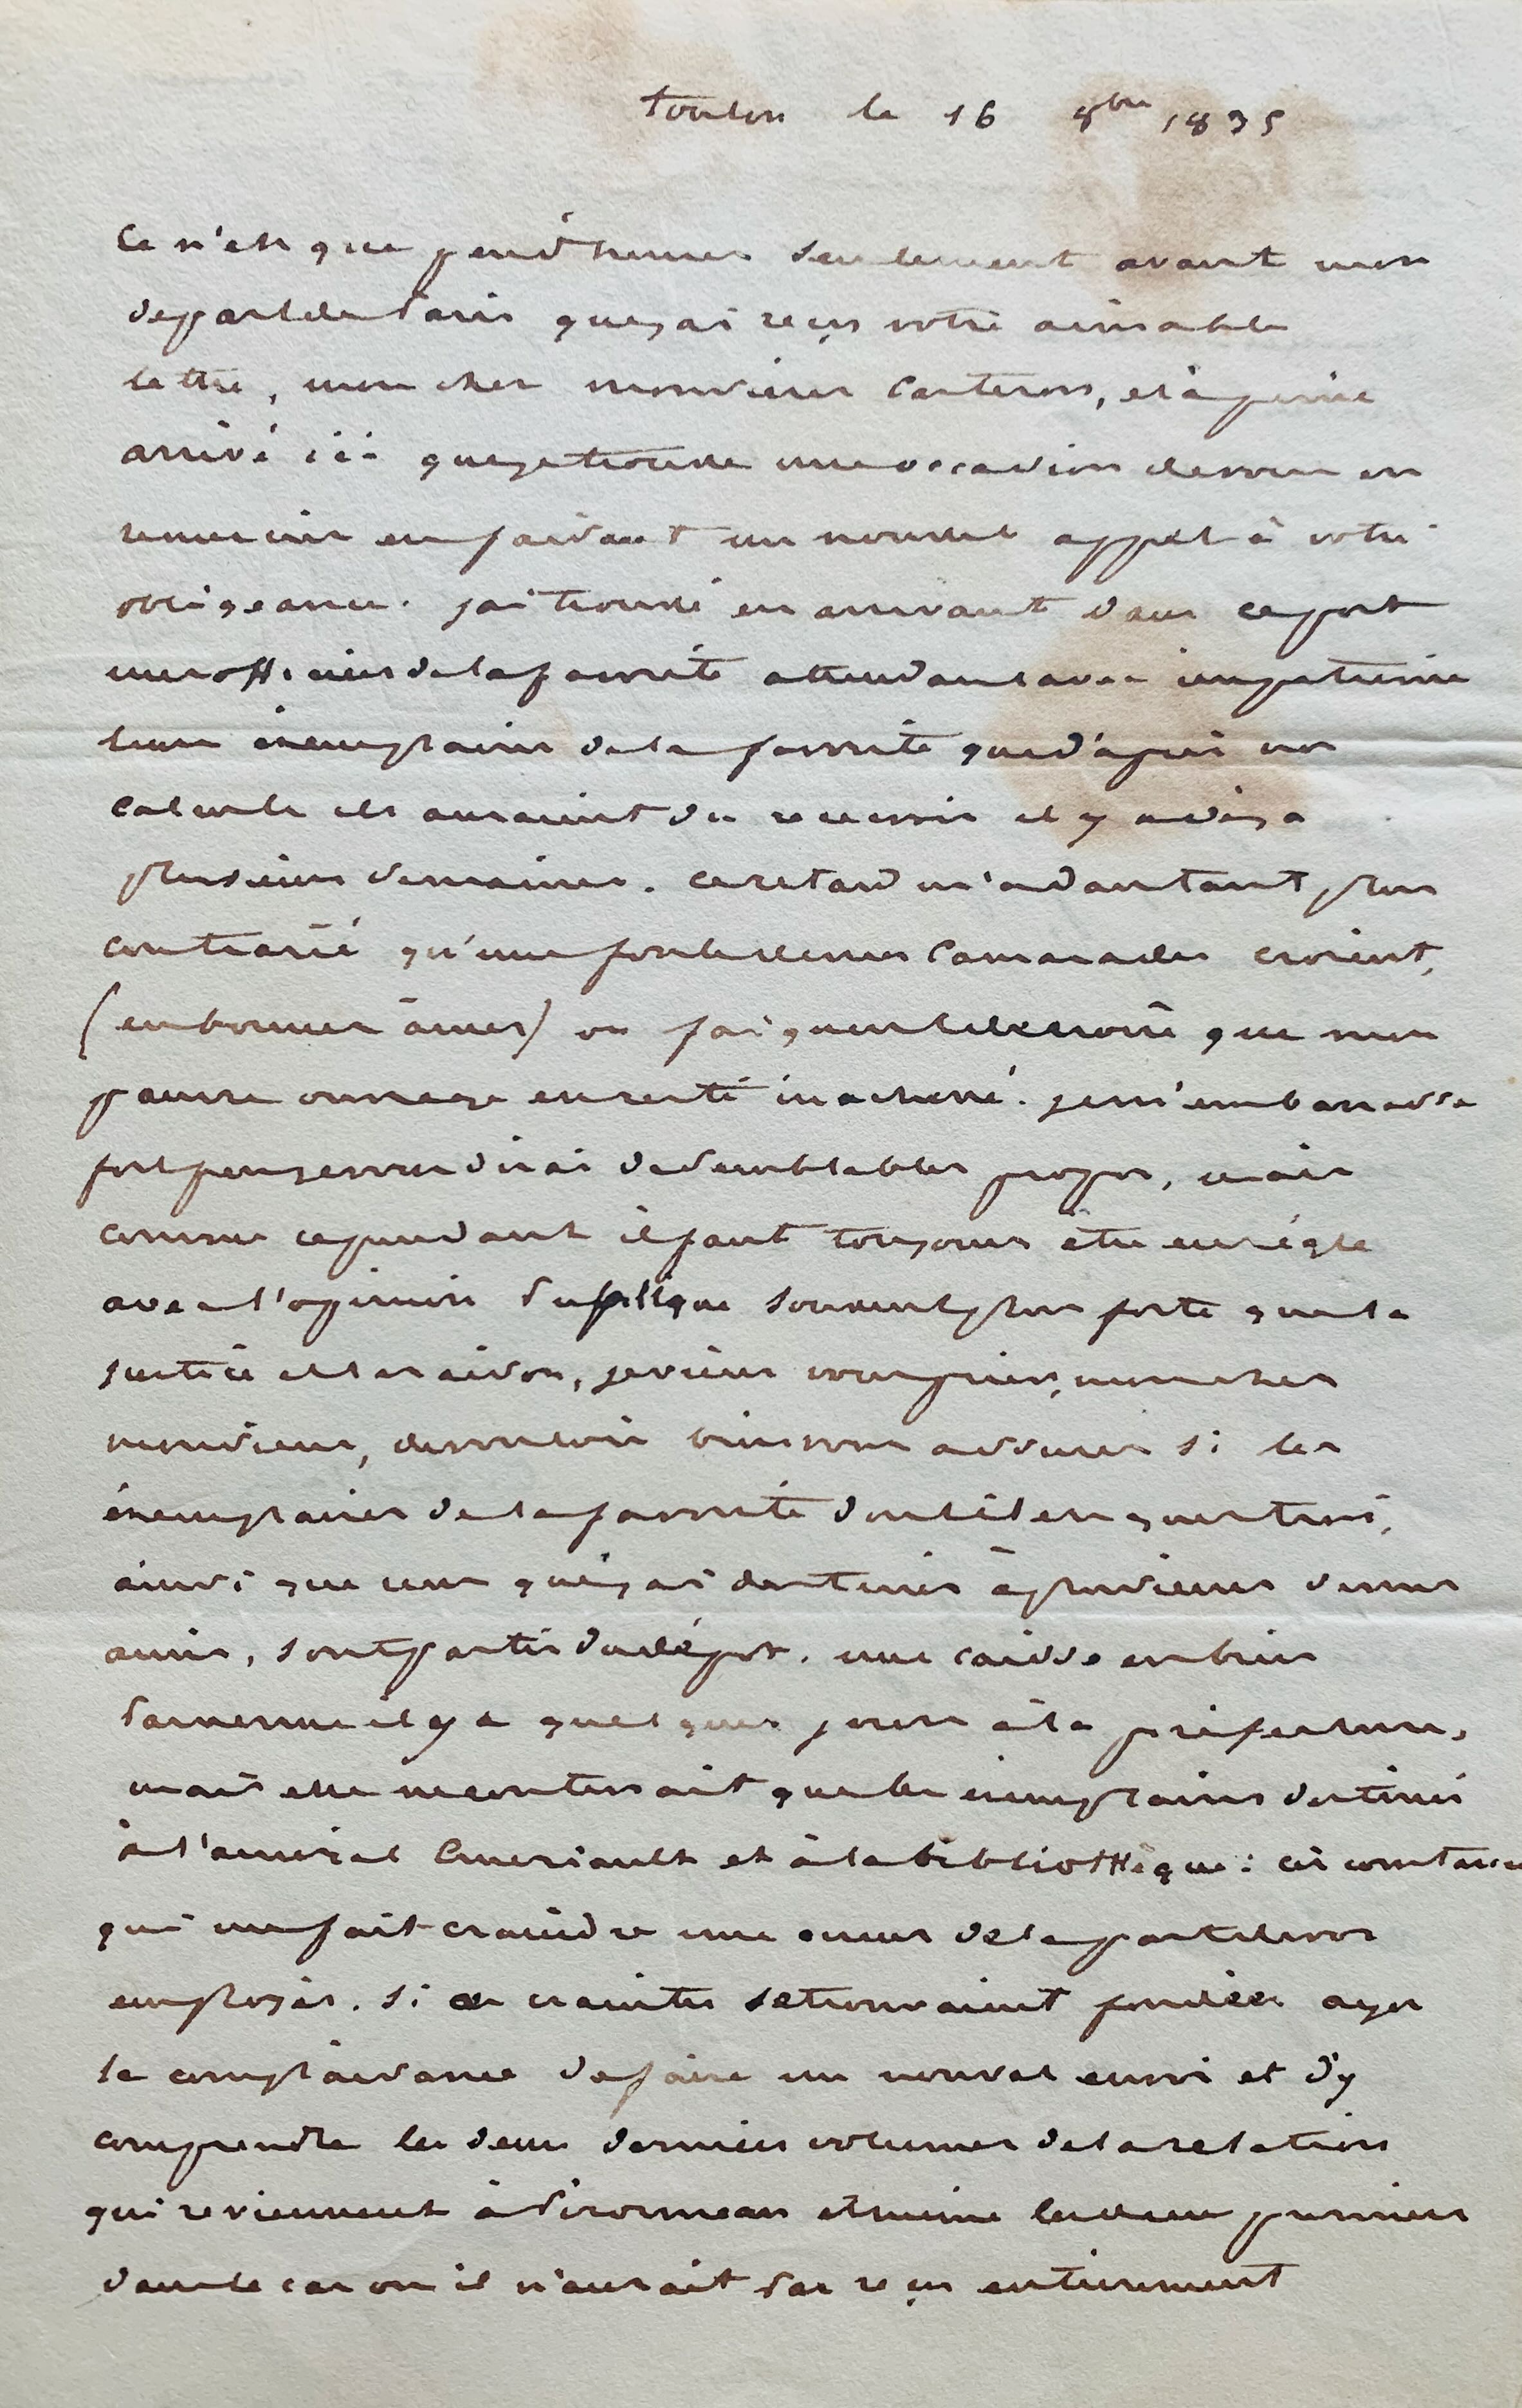 toulon le 16 8bre 1835
Ce n'est que peu d'heures seulement avant mon
depart de Paris que j'ai reçu votre aimable
lettre, mon cher monsieur Casteron, et à peine
arrivé ici que je trouve une occasion de vous en
remercier en faisant un nouvel appel à votre
obligeance. j'ai trouvé en arrivant dans ce port
mes officiers de la favorite attendant avec impatience
leurs éxemplaires de la favorite que d'après nos
calculs ils auraient du recevoir il y a déja
plusieurs semaines. ce retard m'a d'autant plus
contrarié qu'une foule de mes camarades croient,
(en bonnes âmes) ou faignent de croire que mon
pauvre ouvrage en resté inachevé. je m'embarasse
fort peu je vous dirai de semblables propos, mais
comme cependant il faut toujours être en règle
avec l'opinion publique souvent plus forte que la
justice et la raison, je viens vous prier, mon cher
monsieur, de vouloir bien vous assurer si les
éxemplaires de la favorite dont il est question,
ainsi que ceux que j'ai destinés à plusieurs de mes
amis, sont partis du dépot. une caisse est bien
parvenue il y a quelques jours à la préfecture,
mais elle ne contenait que les éxemplaires destinés
à l'amiral et à la bibliothèque : circonstance
qui me fait craindre une erreur de la part de vos
employés. si ces craintes se trouvaient fondées ayez
la complaisance de faire un nouvel envoi et d'y
comprendre les deux derniers volumes de la relation
qui reviennent à et même les deux premiers
dans le cas ou il n'aurait pas reçu entierement